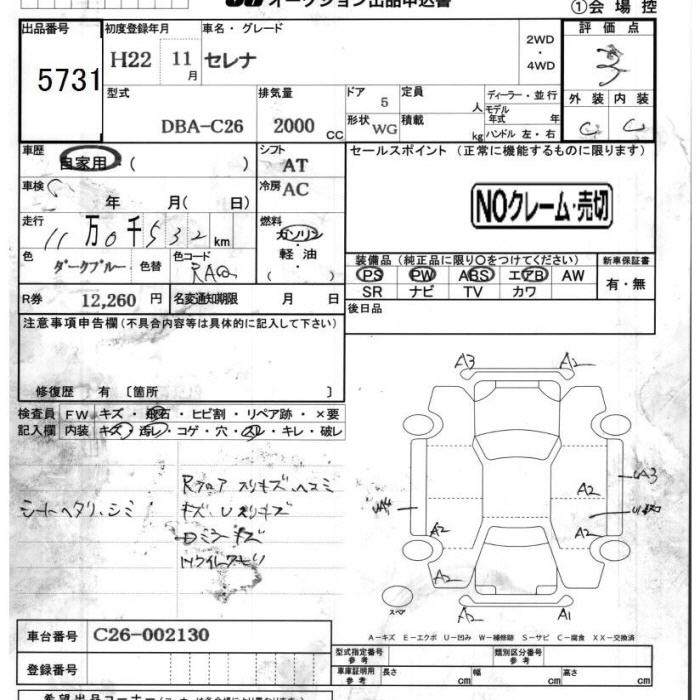 オークション出品申込書
①会場控
出品番号 初度登録年月 車名・グレード 2WD・4WD 評価点
5731 H22 11月 セレナ
型式 排気量 ドア 5 定員 人 ディーラー・並行 外装 内装
DBA-C26 2000 CC 形状 WG 積載 kg モデル年式 年 C C
ハンドル 左・右
車歴 自家用・( ) シフト AT セールスポイント (正常に機能するものに限ります)
車検 年 月( 日) 冷房 AC
NOクレーム・売切
走行 11万0千532km 燃料 ガソリン・軽油・( )
色 ダークブルー 色替 色コード
装備品 (純正品に限り〇をつけてください) 新車保証書
PS PW ABS エアB AW 有・無
SR ナビ TV カワ
R券 12,260 円 名変通知期限 月 日
後日品
注意事項申告欄(不具合内容等は具体的に記入して下さい)
修復歴 有 〔箇所 〕
検査員記入欄 FW キズ・飛石・ヒビ割・リペア跡・×要
内装 キズ・汚レ・コゲ・穴・スレ・キレ・破レ
シートヘタリ、シミ
A3 A2
A2 A3
A2 A2
A2 A2
スペア
A2 A1
A-キズ E-エクボ U-凹み W-補修跡 S-サビ C-腐食 XX-交換済
車台番号 C26-002130
登録番号
型式指定番号 参考 類別区分番号 参考
車庫証明用 参考 長さ cm 幅 cm 高さ cm
希望出品コーナー